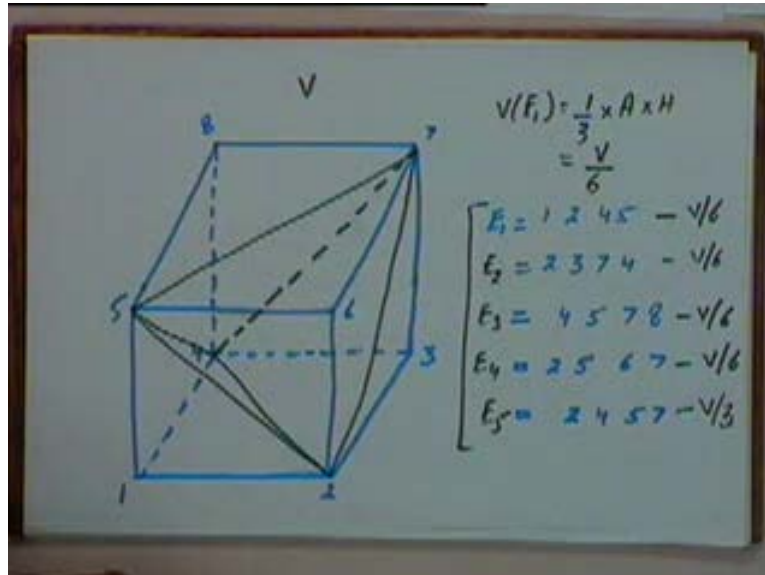 V
8
7
5
6
4
3
1
2
V(E₁) = 1/3 x A x H
= V/6
E₁ = 1 2 4 5 – V/6
E₂ = 2 3 7 4 – V/6
E₃ = 4 5 7 8 – V/6
E₄ = 2 5 6 7 – V/6
E₅ = 2 4 5 7 – V/3